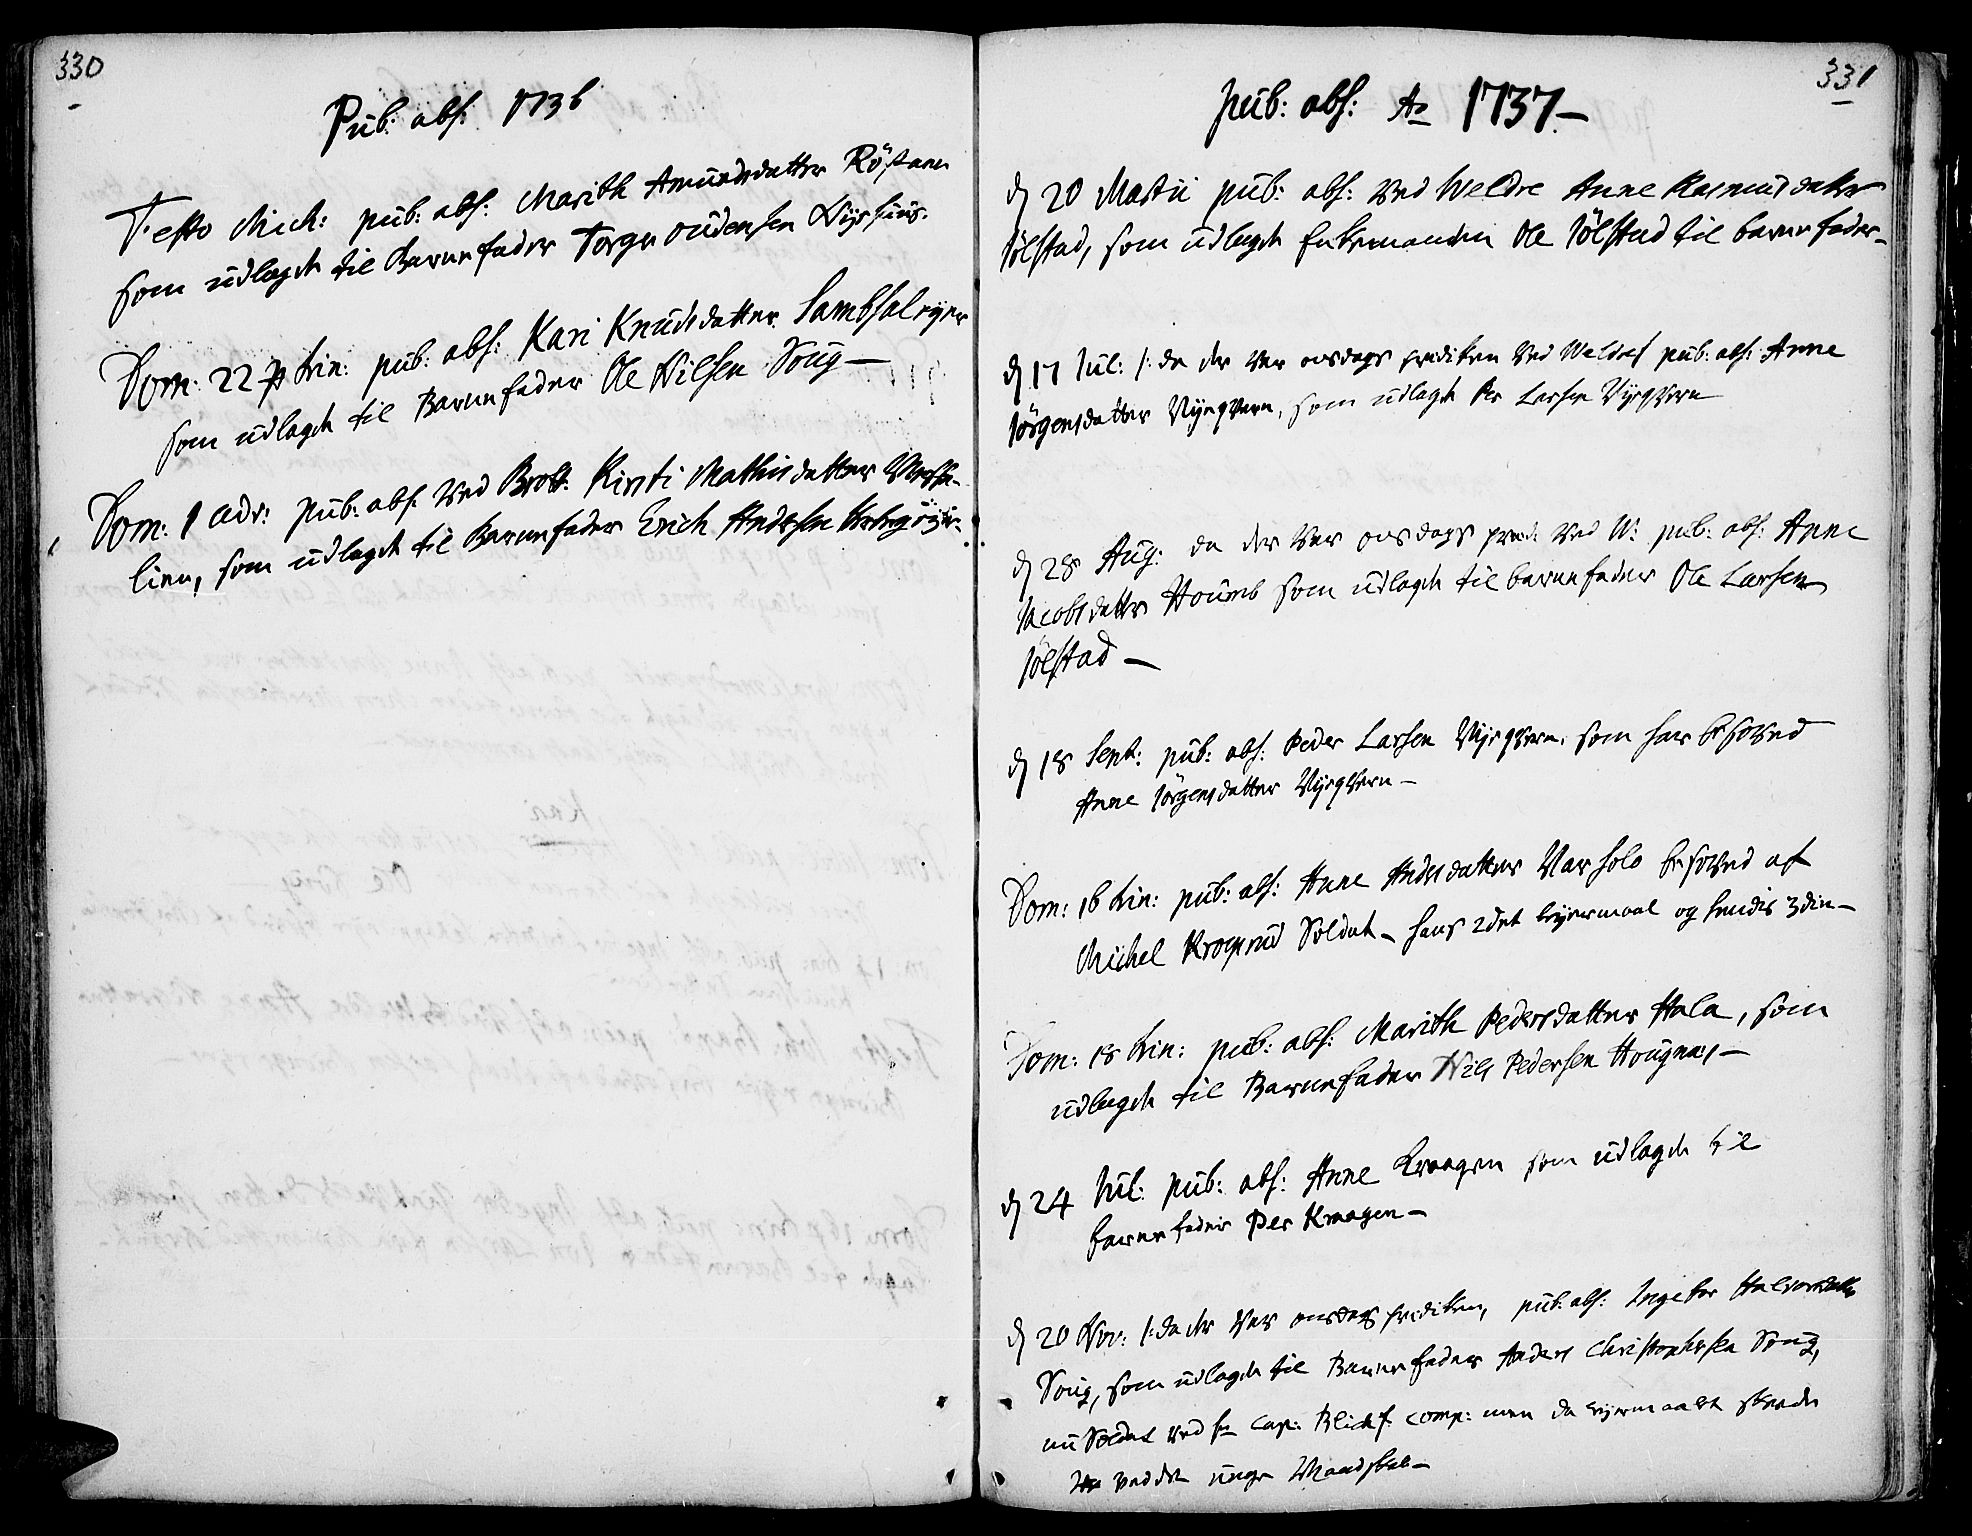 330
Pub: abs: 1736
Festo Mich: pub: abs: Marith Amundsdatter Röstøen
som udlagde til Barnefader Torger oudensen Nyshuus.
Dom: 22 p trin: pub: abs: Kari Knudsdatter Sambsaleyer
som udlagde til Barnefader Ole Nilsen Soug —
Dom: 1 adv: pub: abs: ved Brott: Kirsti Mathisdatter
lien, som udlagde til Barnefader Erich Andersen
331
pub: abs: Ao 1737 —
d 20 Martii pub: abs: ved Weldre Anne Rasmusdatter
Jölstad, som udlagde Enkemanden Ole Jölstad til barnefader —
d 17 Jul: /: da der var onsdags prediken ved Weldre/ pub: abs: Anne
Jörgensdatter Nyeqvern, som udlagde Per Larsen Nyeqvern
d 28 Aug: da der var onsdags pred: ved W: pub: abs: Anne
Jacobsdatter Houmb som udlagde til barnefader Ole Larsen
Jölstad —
d 18 Sept: pub: abs: Peder Larsen Nyeqvern, som har besoved
Anne Jörgensdatter Nyeqvern —
Dom: 16 trin: pub: abs: Anne Andersdatter Narholo besoved af
Michel Krogsrud Soldat — hans 2det leyermaal og hendis 3die —
Dom: 18 trin: pub: abs: Marith Pedersdatter Hala, som
udlagde til Barnefader Nils Pedersen Hougnæs —
d 24 Jul: pub: abs: Anne Kraagen som udlagde til
barnefader Per Kraagen —
d 20 Nov: /: da der var onsdags prediken, pub: abs: Ingebor Halvorsdatter
Soug, som udlagde til Barnefader Anders Christophersen Soug,
nu Soldat ved hr Cap: Blichf: Comp: men da leyermaalet skeede
var ved det unge Mandskab —